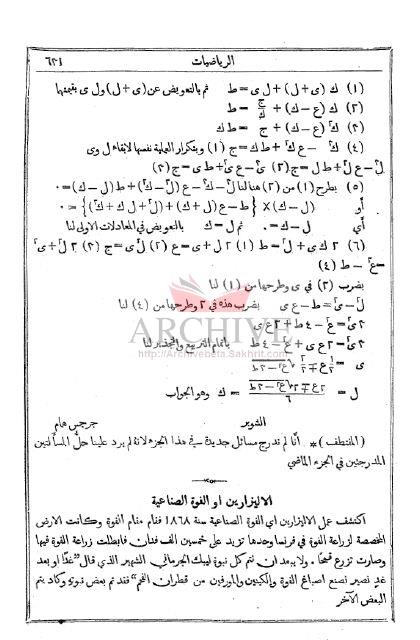 الرياضيات
٦٣١
(١) ك (ى + ل) + ل ى = ط ثم بالتعويض عن (ى + ل) ول ى بقيمتها
(٢) ك (ع - ك) + ج/ك = ط
(٣) ك٢ (ع - ك) + ج = ط ك
(٤) ك٣ - ع ك٢ + ط ك = ج (١) وبتكرار العملية نفسها لابقاء ل وى
ل٣ - ع ل٢ + ط ل = ج (٢) ى٣ - ع ى٢ + ط ى = ج (٣)
(٥) بطرح (١) من (٢) هنا لنا ل٣ - ك٣ - ع (ل٢ - ك٢) + ط (ل - ك) = ٠
أو (ل - ك) × { ط - ع (ل + ك) + (ل٢ + ل ك + ك٢) } = ٠
أي ل - ك = ٠ ثم ل = ك بالتعويض في المعادلات الاولى لنا
(٦) ٢ ك ى + ل٢ = ط (١) ٢ ل + ى = ع (٢) ل٢ ى = ج (٣) ٢ ل٢ + ى٢
= ع٢ - ٢ ط (٤)
بضرب (٢) في ى وطرحها من (١) لنا
ل٢ - ى٢ = ط - ع ى بضرب هذه في ٢ وطرحها من (٤) لنا
٣ ى٢ = ع٢ - ٤ ط + ٢ ع ى
٣ ى٢ = ٢ ع ى + ع٢ - ٤ ط باتمام التربيع والتجذير لنا
ARCHIVE
http://Archivebeta.Sakhrit.com
وهو الجواب
الشوير
جرجس همام
(المقتطف) * انّا لم ندرج مسائل جديدة في هذا الجزء لانه لم يرد علينا حلّ المسألتين
المدرجتين في الجزء الماضي
الاليزارين او الفوة الصناعية
اكتشف عمل الاليزارين اي الفوة الصناعية سنة ١٨٦٨ فقام مقام الفوة وكانت الارض
المخصصة لزراعة الفوة في فرنسا وحدها تزيد على خمسين الف فدان فابطلت زراعة الفوة فيها
وصارت تزرع قمحًا. ولا يبعد ان تتم كل نبوة ليبك الجرماني الشهير الذي قال "غدًا او بعد
غدٍ نصير نصنع اصباغ الفوة والكينين والمورفين من قطران الفحم" فقد تم بعض نبوته وكاد يتم
البعض الآخر